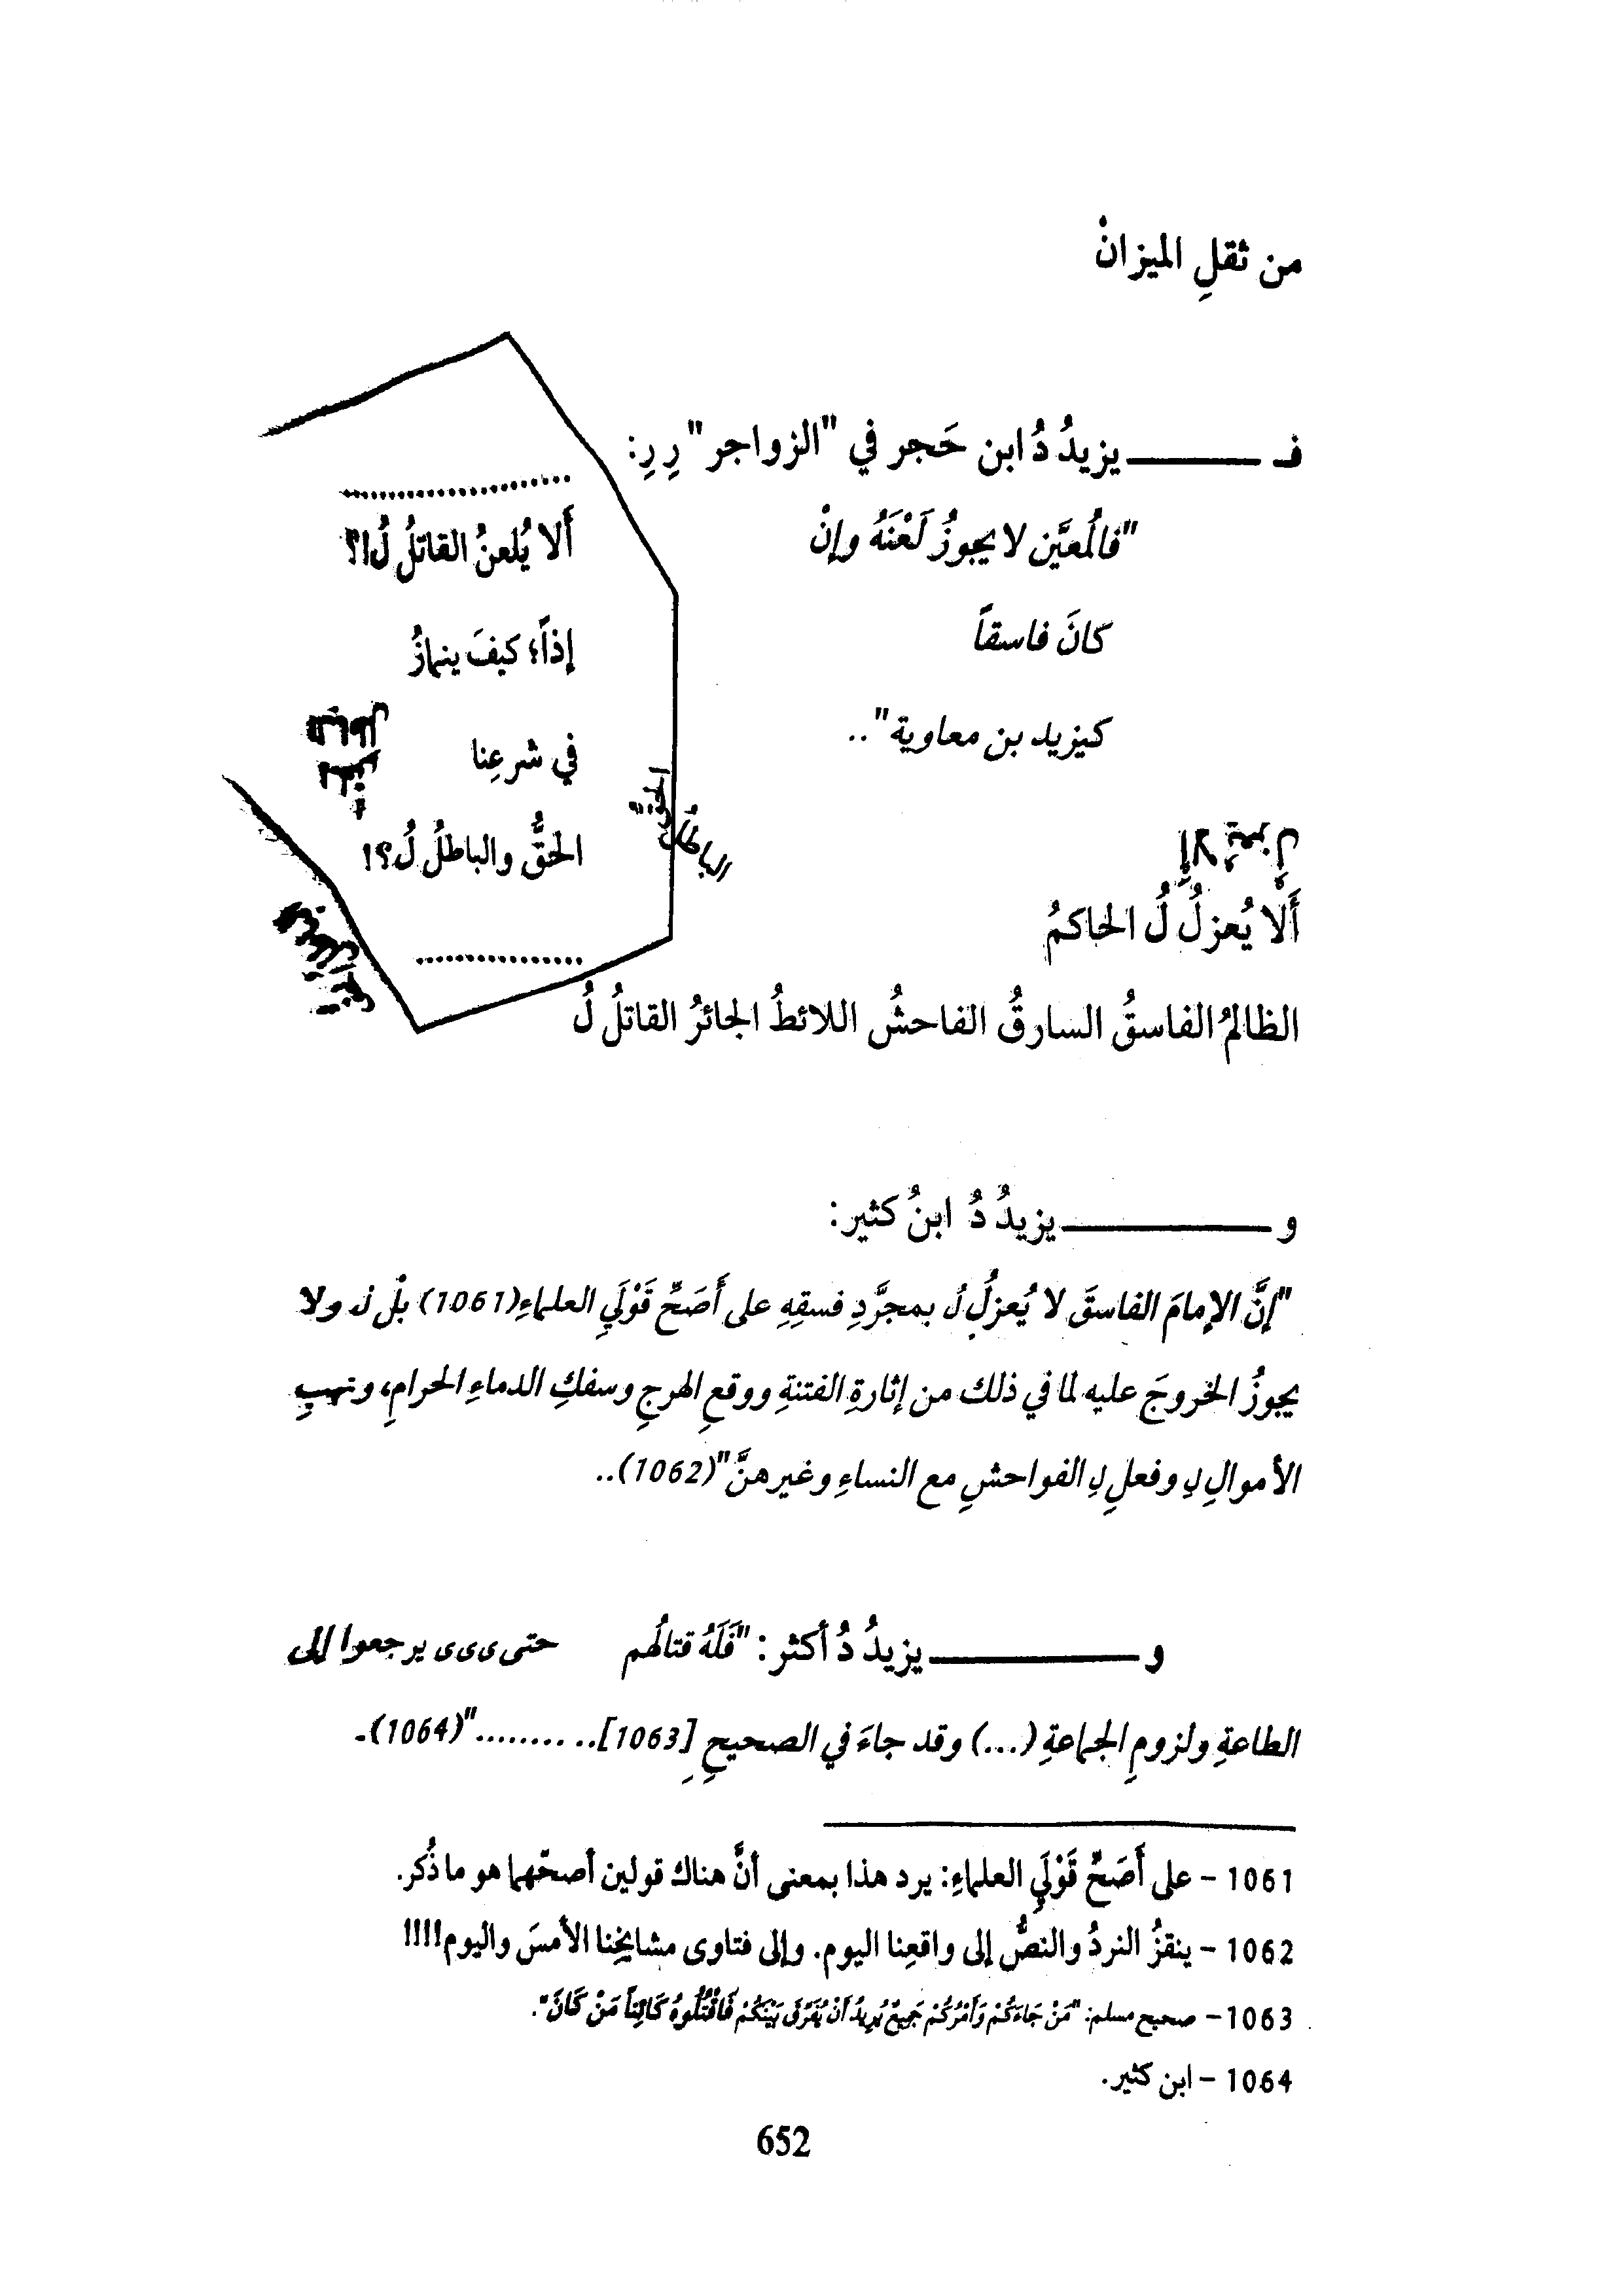 من ثقلِ الميزانْ
فـ ـــــــ يزيدُ دُ ابن حَجر في "الزواجر" رِ رِ:
"فالمُعيَّن لا يجوزُ لَعْنَهُ وإنْ
كانَ فاسقاً
كيزيد بن معاوية"..
..............................
أَلا يُلعنُ القاتلُ لُ!؟
إذاً؛ كيفَ ينمازُ
في شرعِنا
الحقُّ والباطلُ لُ؟!
..............................
الحقُّ
الباطل
أَلَا يُعزلُ لُ الحاكمُ
الظالمُ الفاسقُ السارقُ الفاحشُ اللائطُ الجائرُ القاتلُ لُ
و ـــــــــــ يزيدُ دُ ابنُ كثير:
"إنَّ الإمامَ الفاسقَ لا يُعزلُ لُ بمجرَّدِ فسقِهِ على أَصَحِّ قَوْلَيِ العلماءِ(1061) بلْ ل ولا
يجوزُ الخروجَ عليه لما في ذلك من إثارةِ الفتنةِ ووقعِ الهرجِ وسفكِ الدماءِ الحرامِ، ونهبِ
الأموالِ لِ وفعلِ لِ الفواحشِ مع النساءِ وغيرهنَّ"(1062)..
و ـــــــــــ يزيدُ دُ أكثر: "فَلَهُ قتالُهم حتى ى ى ى يرجعوا إلى
الطاعةِ ولزومِ الجماعةِ (...) وقد جاءَ في الصحيحِ [1063].. ........."(1064)-
1061 - على أَصَحِّ قَوْلَيِ العلماءِ: يرد هذا بمعنى أنَّ هناك قولين أصحّهما هو ما ذُكر.
1062 - ينقزُ النردُ والنصُّ إلى واقعِنا اليوم. وإلى فتاوى مشايخِنا الأمسَ واليوم!!!!
1063 - صحيح مسلم: "مَنْ جَاءَكُمْ وَأَمْرُكُمْ جَمِيعٌ يُرِيدُ أَنْ يُفَرِّقَ بَيْنَكُمْ فَاقْتُلُوهُ كَائِناً مَنْ كَانَ".
1064 - ابن كثير.
652